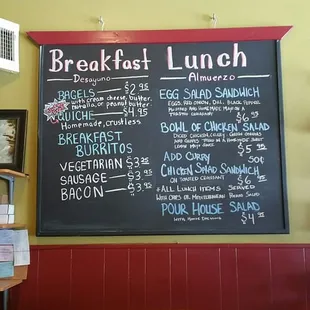 Breakfast
Desayuno
BAGELS $2.95
with cream cheese, butter,
nutella, or peanut butter.
QUICHE $4.95
Homemade, crustless
BREAKFAST
BURRITOS
VEGETARIAN $3.35
SAUSAGE $3.95
BACON $3.95
Lunch
Almuerzo
EGG SALAD SANDWICH
EGGS, RED ONION, DILL, BLACK PEPPER,
MUSTARD AND HOMEMADE MAYO ON A
TOASTED CROISSANT
$6.95
BOWL OF CHICKEN SALAD
DICED CHICKEN, CELERY,
$5.95
ADD CURRY 50¢
CHICKEN SALAD SANDWICH
ON TOASTED CROISSANT $6.95
*ALL LUNCH ITEMS SERVED
WITH CHIPS OR MEDITERRANEAN SALAD
POUR HOUSE SALAD
WITH HOUSE DRESSING $4.95